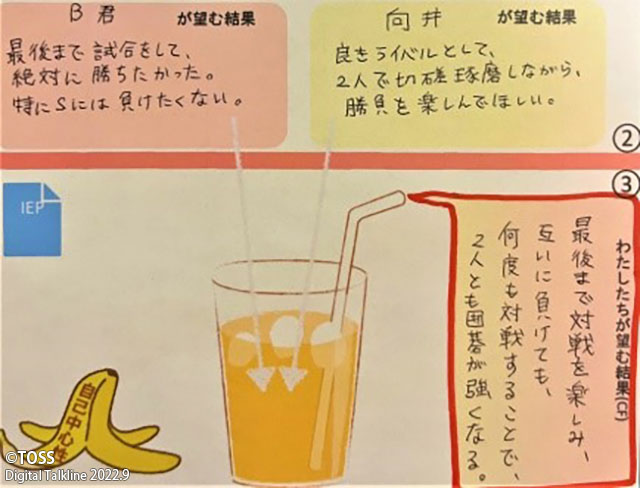 B君 が望む結果
最後まで試合をして、
絶対に勝ちたかった。
特にSには負けたくない。
向井 が望む結果
良きライバルとして、
2人で切磋琢磨しながら、
勝負を楽しんでほしい。
②
③
IEP
わたしたちが望む結果(CF)
最後まで対戦を楽しみ、
互いに負けても、
何度も対戦することで、
2人とも囲碁が強くなる。
自己中心性
©TOSS
Digital Talkline 2022.9